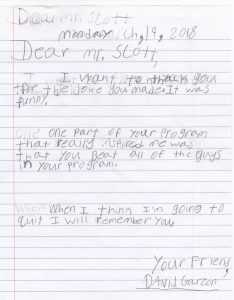 Dear Mr. Scott
monday ch, 19, 2018
Dear mr. Scott,
I want to thank you
for the joke you made. It was
funny.
one one part of your program
that really inspired me was
that you beat all of the guys
in your program.
When When I think I'm going to
quit I will remember you.
Your Friend,
DAvid Garzon